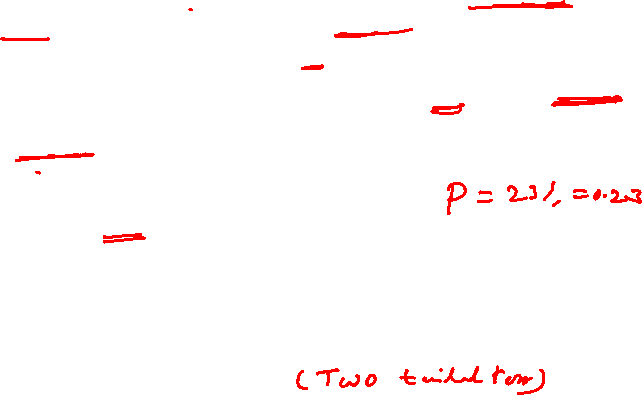 P = 23% = 0.23
(Two tailed test)